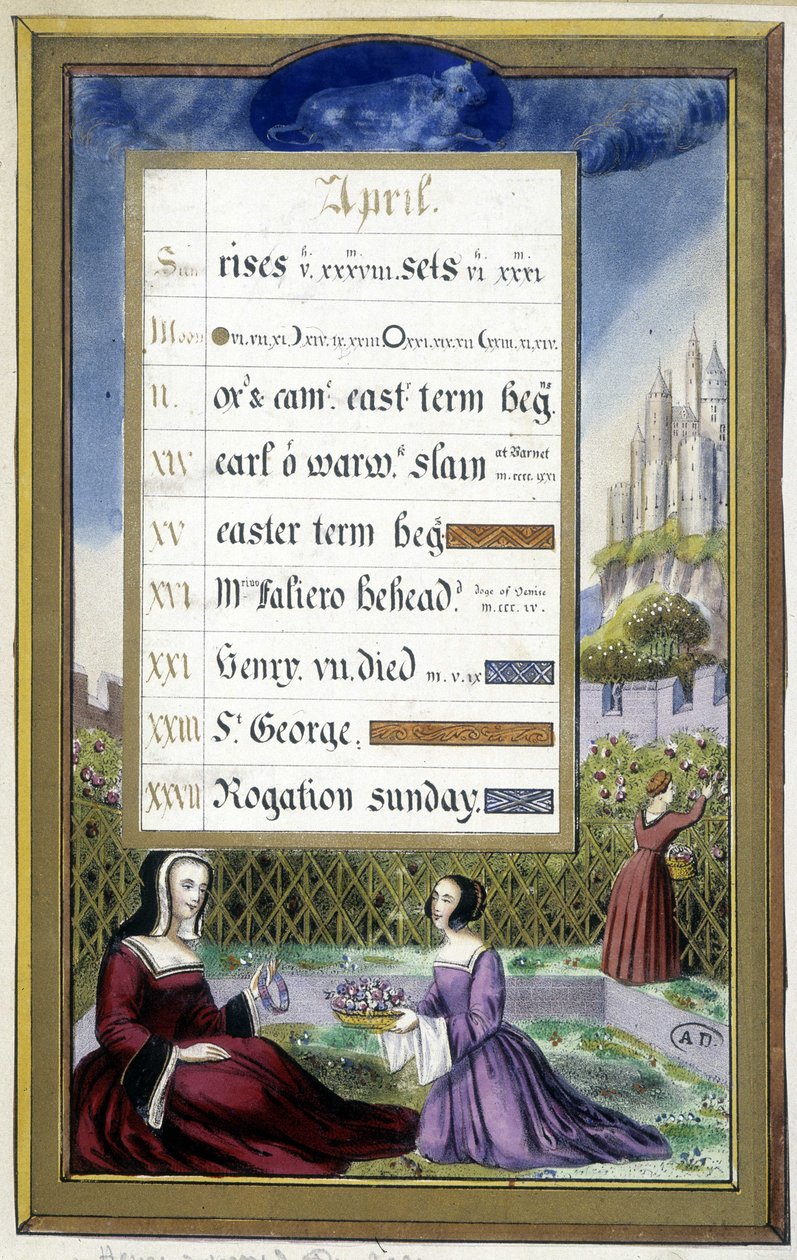 April.
Sun rises v.h xxxviii.m sets vi h xxxi m.
Moon vi.vii.xi. xiv.ix.xxiii. xxi.xix.xii xxiii.xi.xiv.
II. oxd & camc. eastr term begns.
XIV earl o warw.k slain at Barnet m.cccc.lxxi
XV easter term begs
XVI Mrino Faliero behead.d doge of Venise m.ccc.lv.
XXI Henry. vii. died m.v.ix
XXIII St George.
XXVII Rogation sunday.
A D.